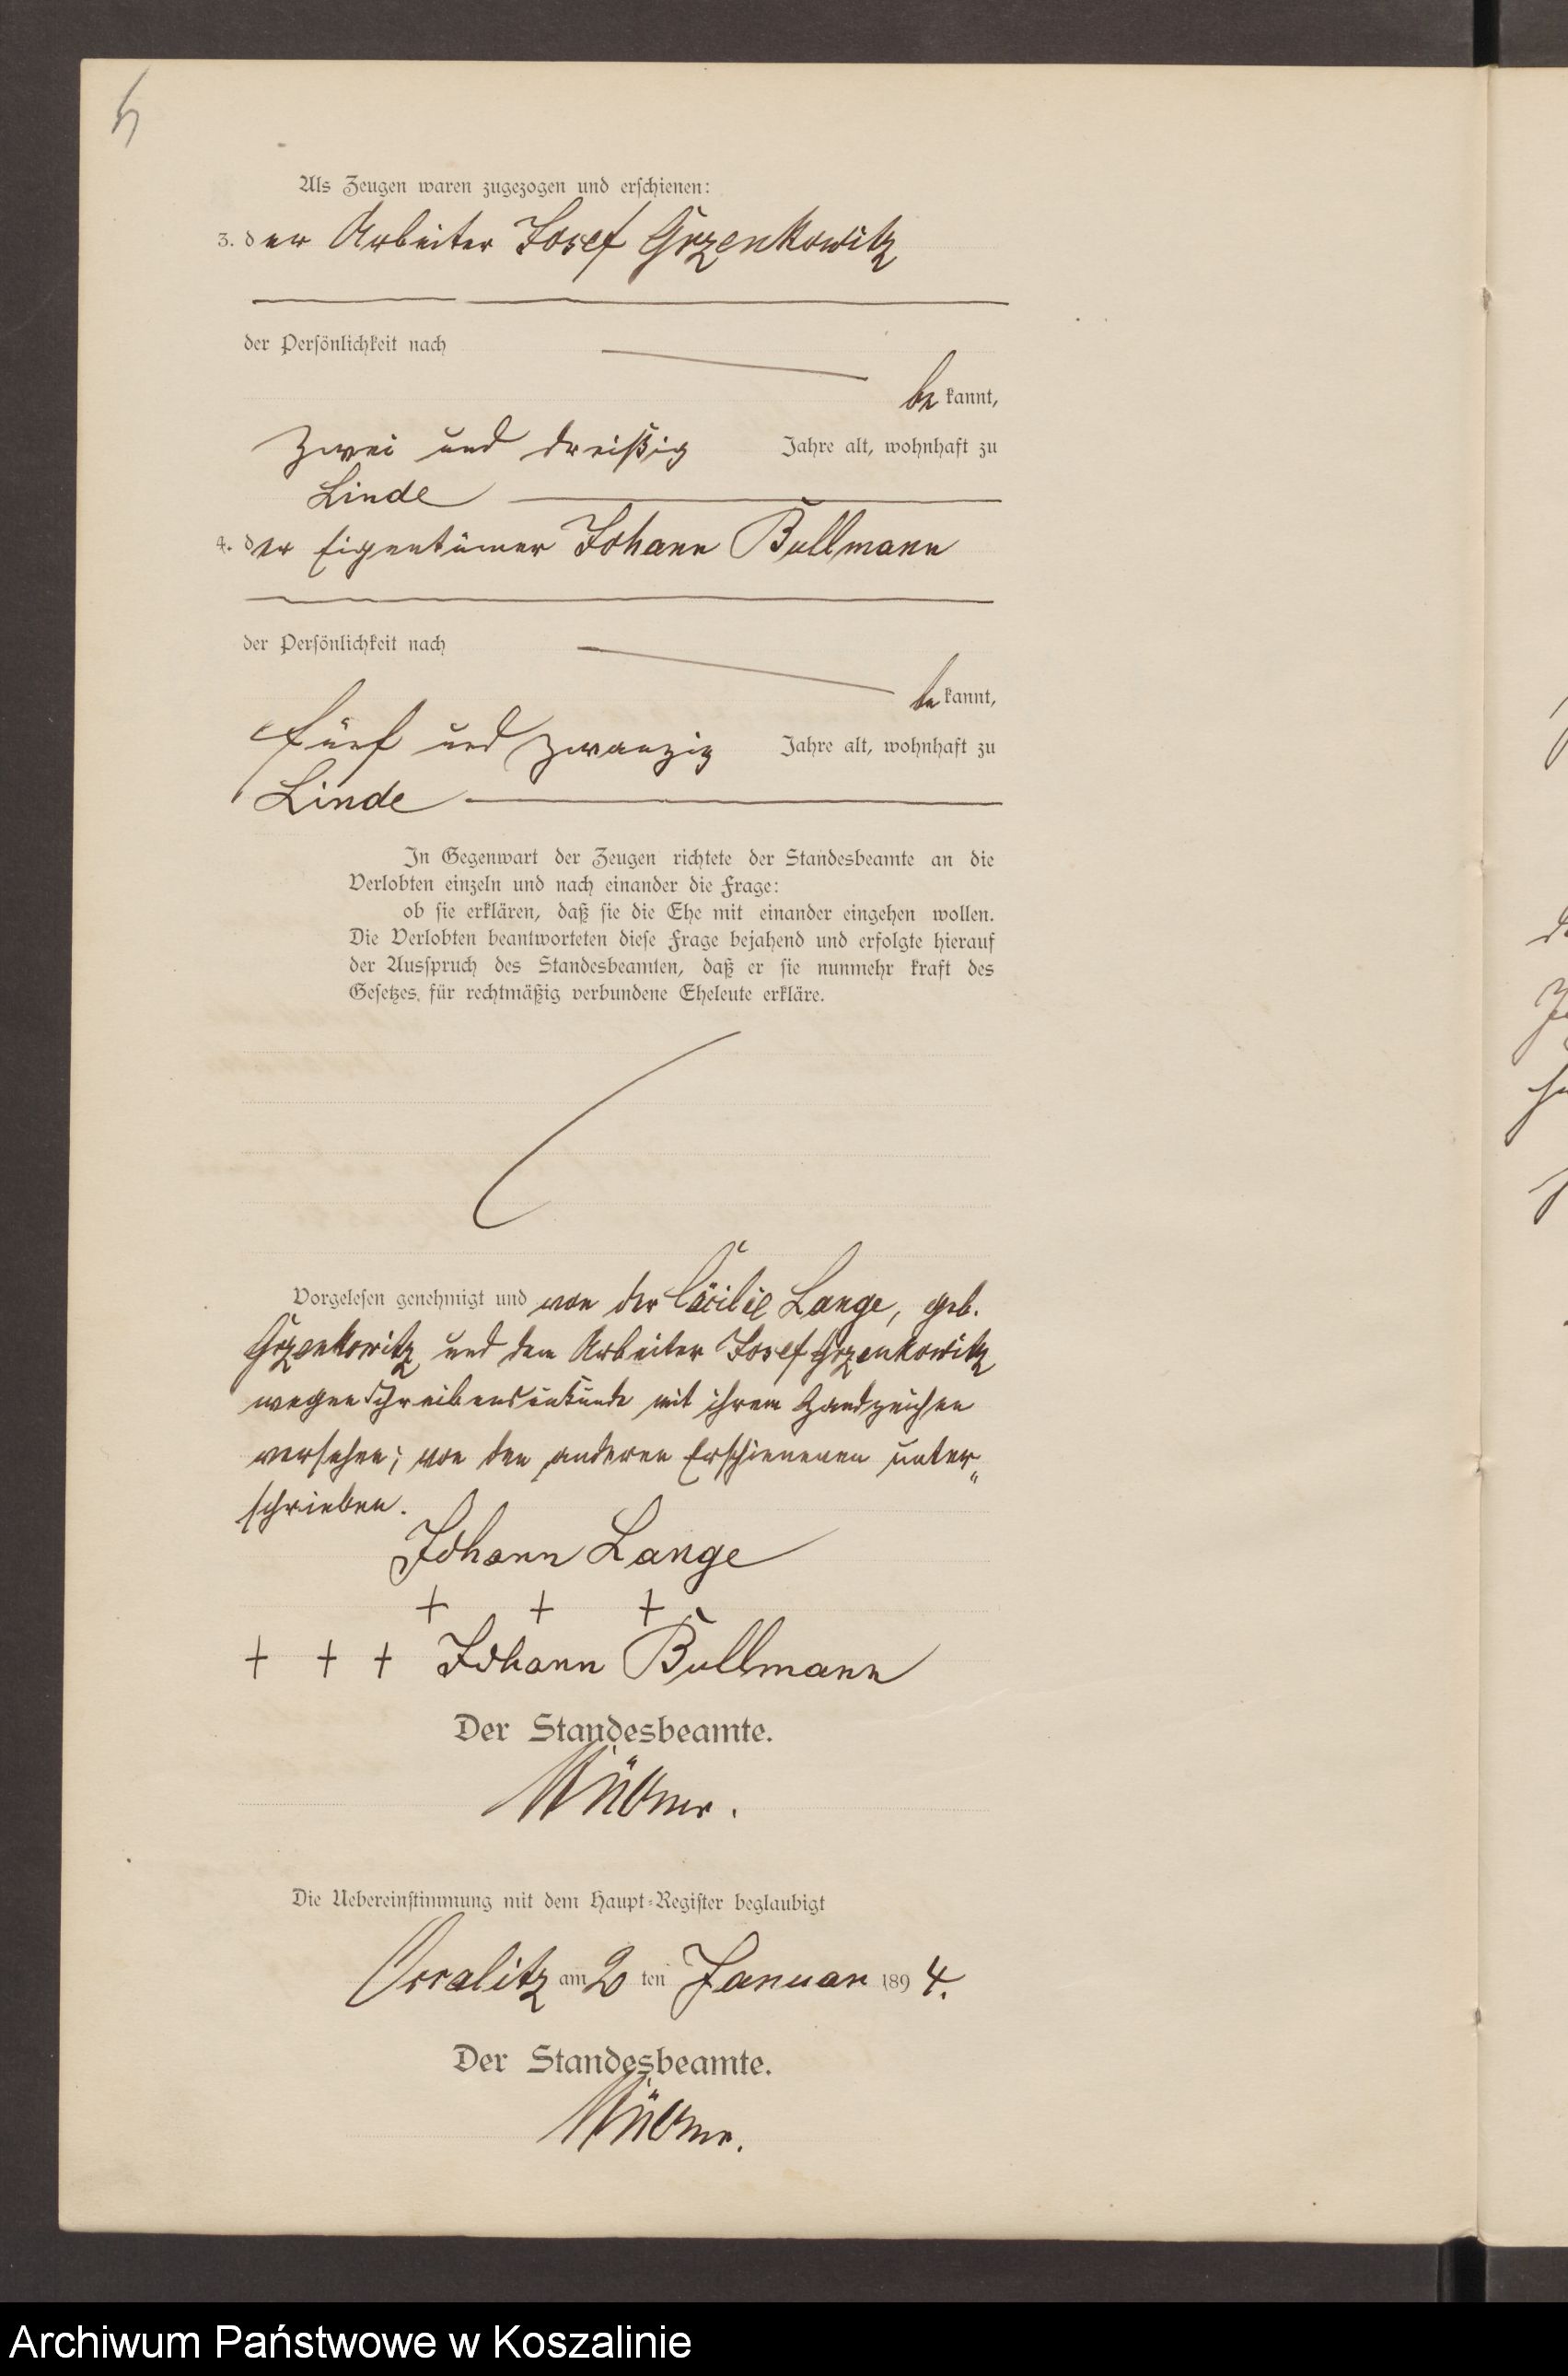 Als Zeugen waren zugezogen und erschienen:
3. der Arbeiter Josef Grzenkowitz
der Persönlichkeit nach
bekannt,
zwei und dreißig Jahre alt, wohnhaft zu
Linde
4. der Eigentümer Johann Bullmann
der Persönlichkeit nach
bekannt,
fünf und zwanzig Jahre alt, wohnhaft zu
Linde
In Gegenwart der Zeugen richtete der Standesbeamte an die
Verlobten einzeln und nach einander die Frage:
ob sie erklären, daß sie die Ehe mit einander eingehen wollen.
Die Verlobten beantworteten diese Frage bejahend und erfolgte hierauf
der Ausspruch des Standesbeamten, daß er sie nunmehr kraft des
Gesetzes für rechtmäßig verbundene Eheleute erkläre.
Vorgelesen genehmigt und von der Cäcilie Lange, geb.
Grzenkowitz und dem Arbeiter Josef Grzenkowitz
wegen Schreibensunkunde mit ihrem Handzeichen
versehen; von den anderen Erschienenen unter„
schrieben.
Johann Lange
+ + +
+ + + Johann Bullmann
Der Standesbeamte.
Die Uebereinstimmung mit dem Haupt-Register beglaubigt
am 2 ten Januar 1894.
Der Standesbeamte.
Archiwum Państwowe w Koszalinie